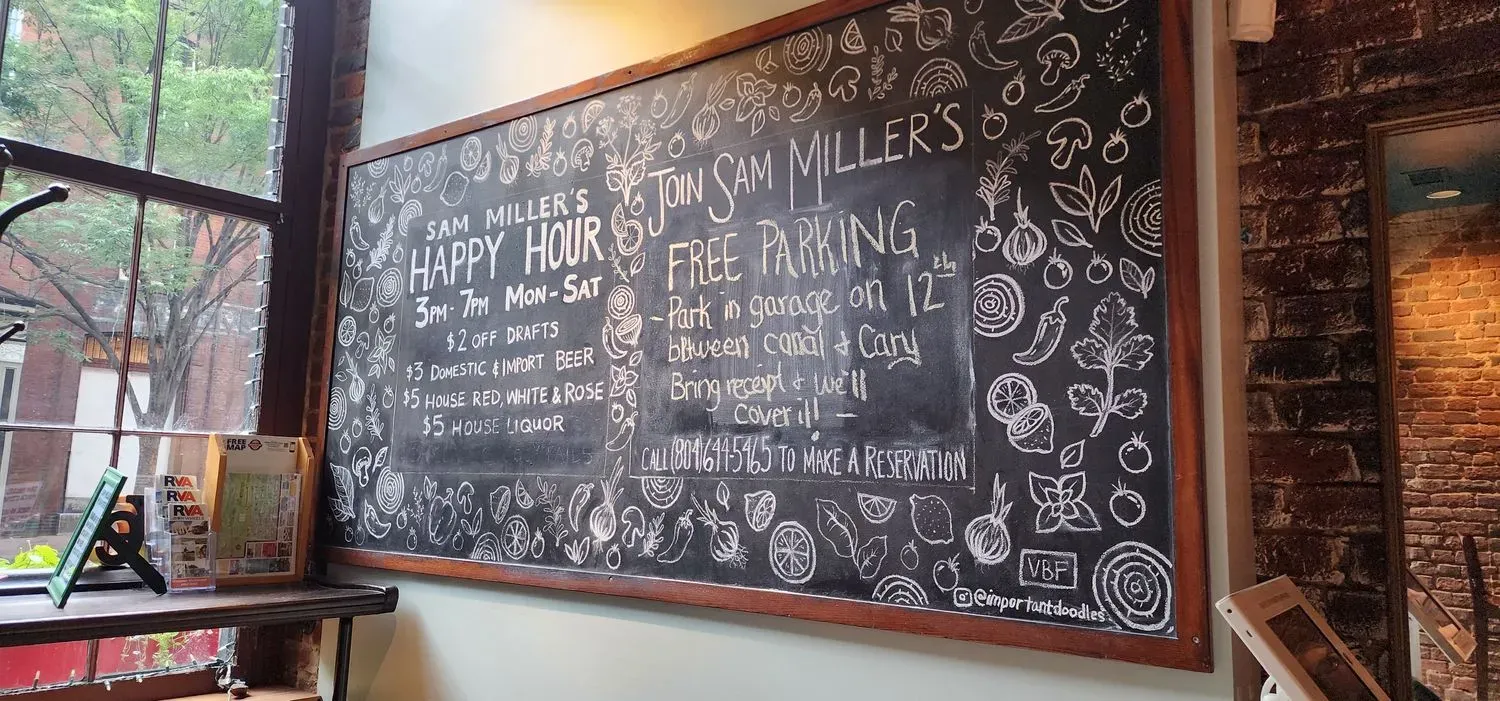 SAM MILLER'S
HAPPY HOUR
3PM - 7PM MON - SAT
$2 OFF DRAFTS
$3 DOMESTIC & IMPORT BEER
$5 HOUSE RED, WHITE & ROSE
$5 HOUSE LIQUOR
JOIN SAM MILLER'S
FREE PARKING
- Park in garage on 12th
between canal & Cary
Bring receipt & we'll
cover it! -
CALL (804)644-5465 TO MAKE A RESERVATION
VBF
@importantdoodles
FREE
MAP
RVA
RVA
RVA